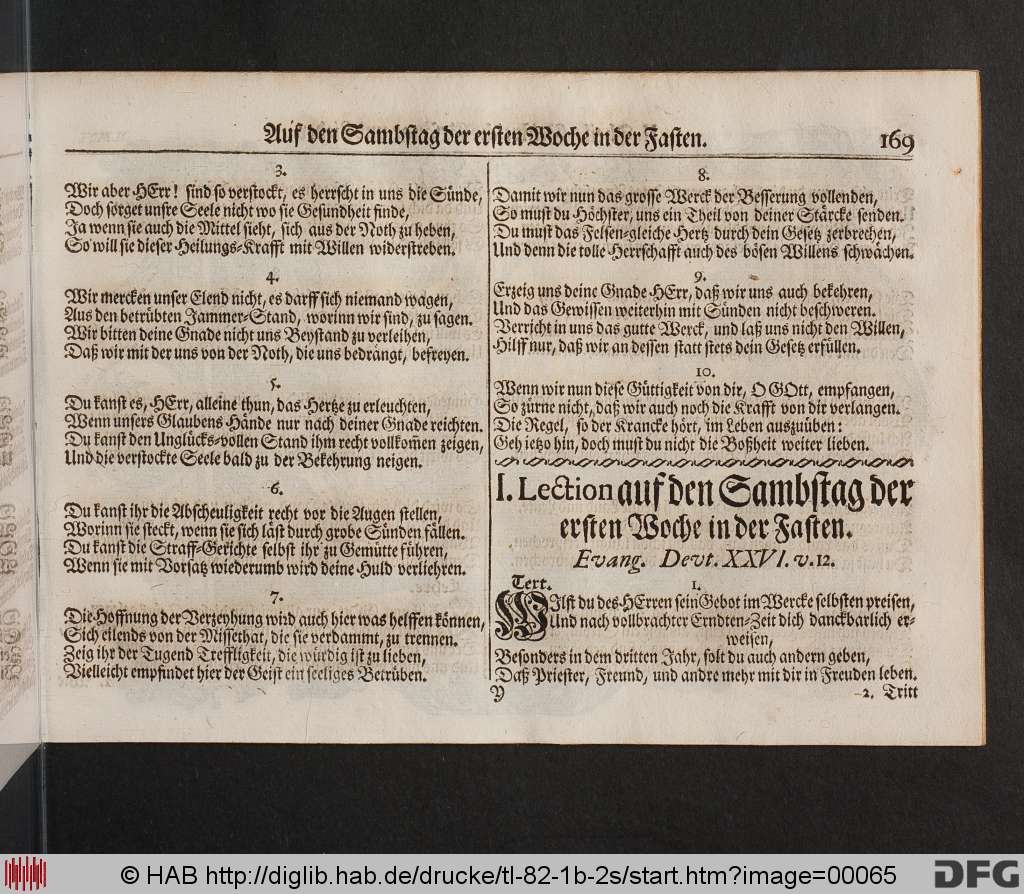 Auf den Sambstag der ersten Woche in der Fasten. 169
3.
Wir aber HErr! sind so verstockt, es herrscht in uns die Sünde,
Doch sorget unsre Seele nicht wo sie Gesundheit finde,
Ja wenn sie auch die Mittel sieht, sich aus der Noth zu heben,
So will sie dieser Heilungs-Krafft mit Willen widerstreben.
4.
Wir mercken unser Elend nicht, es darff sich niemand wagen,
Aus den betrübten Jammer-Stand, worinn wir sind, zu sagen.
Wir bitten deine Gnade nicht uns Beystand zu verleihen,
Daß wir mit der uns von der Noth, die uns bedrängt, befreyen.
5.
Du kanst es, HErr, alleine thun, das Hertze zu erleuchten,
Wenn unsers Glaubens Hände nur nach deiner Gnade reichten.
Du kanst den Unglücks-vollen Stand ihm recht vollkom̃en zeigen,
Und die verstockte Seele bald zu der Bekehrung neigen.
6.
Du kanst ihr die Abscheuligkeit recht vor die Augen stellen,
Worinn sie steckt, wenn sie sich läst durch grobe Sünden fällen.
Du kanst die Straff-Gerichte selbst ihr zu Gemütte führen,
Wenn sie mit Vorsatz wiederumb wird deine Huld verliehren.
7.
Die Hoffnung der Verzeyhung wird auch hier was helffen können,
Sich eilends von der Missethat, die sie verdammt, zu trennen.
Zeig ihr der Tugend Treffligkeit, die würdig ist zu lieben,
Vielleicht empfindet hier der Geist ein seeliges Betrüben.
8.
Damit wir nun das grosse Werck der Besserung vollenden,
So must du Höchster, uns ein Theil von deiner Stärcke senden.
Du must das Felsen-gleiche Hertz durch dein Gesetz zerbrechen,
Und denn die tolle Herrschafft auch des bösen Willens schwächen.
9.
Erzeig uns deine Gnade HErr, daß wir uns auch bekehren,
Und das Gewissen weiterhin mit Sünden nicht beschweren.
Verricht in uns das gutte Werck, und laß uns nicht den Willen,
Hilff nur, daß wir an dessen statt stets dein Gesetz erfüllen.
10.
Wenn wir nun diese Güttigkeit von dir, O GOtt, empfangen,
So zürne nicht, daß wir auch noch die Krafft von dir verlangen.
Die Regel, so der Krancke hört, im Leben auszuüben:
Geh ietzo hin, doch must du nicht die Boßheit weiter lieben.
I. Lection auf den Sambstag der
ersten Woche in der Fasten.
Evang. Devt. XXVI. v. 12.
Text. 1.
WIlst du des HErren sein Gebot im Wercke selbsten preisen,
Und nach vollbrachter Erndten-Zeit dich danckbarlich er-
weisen,
Besonders in dem dritten Jahr, solt du auch andern geben,
Daß Priester, Freund, und andre mehr mit dir in Freuden leben.
Y 2. Tritt
© HAB http://diglib.hab.de/drucke/tl-82-1b-2s/start.htm?image=00065
DFG